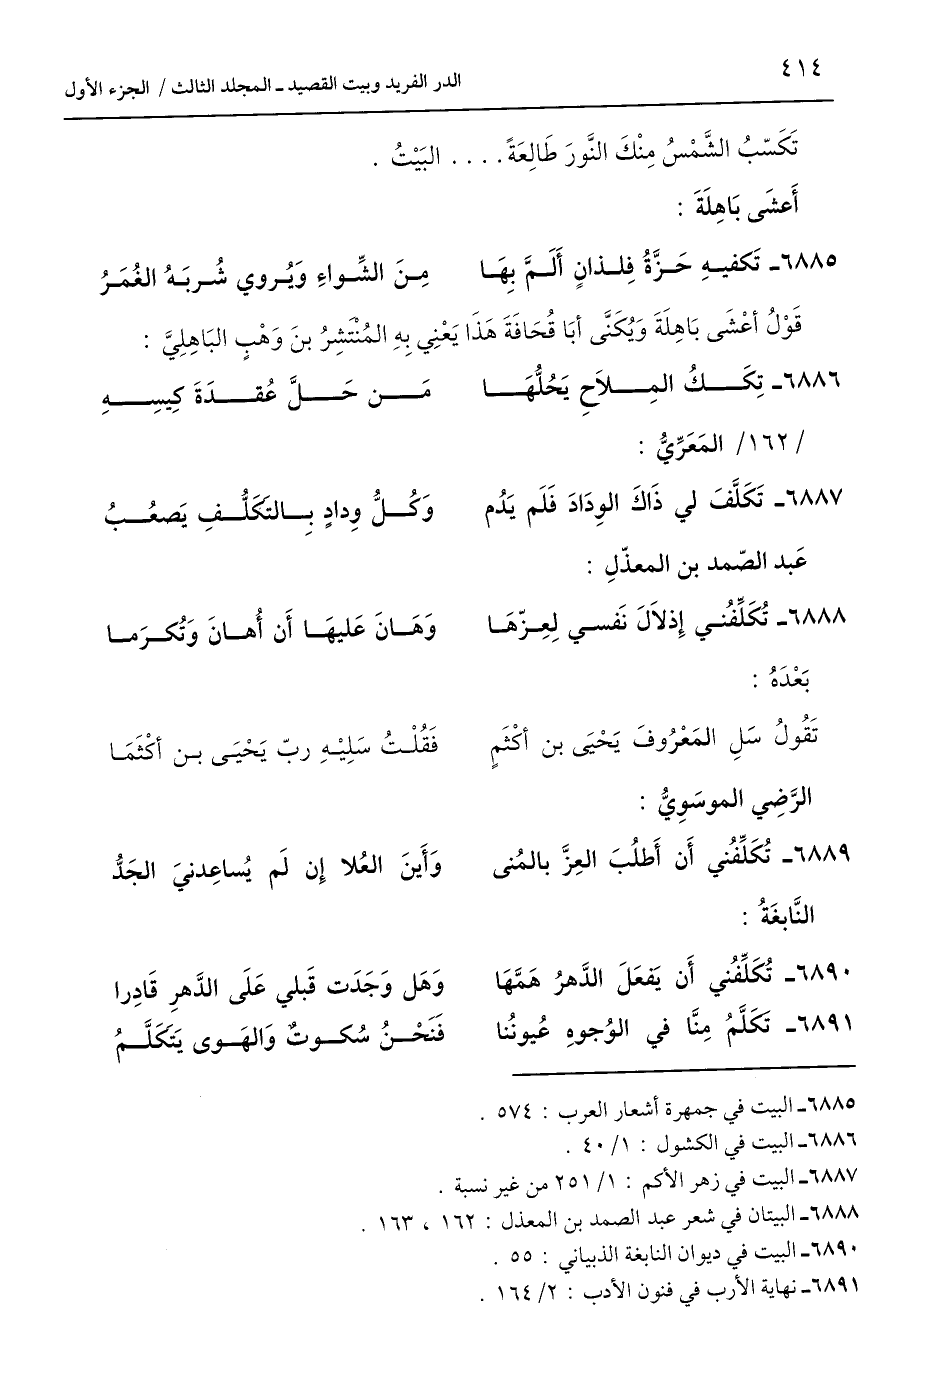 ٤١٤
الدر الفريد وبيت القصيد ـ المجلد الثالث / الجزء الأول
تَكَسّبُ الشَّمْسُ مِنْكَ النَّورَ طَالِعَةً . . . . البَيْتُ .
أَعشَى بَاهِلَةَ :
٦٨٨٥ـ تَكفيهِ حَزَّةُ فِلذانٍ أَلَمَّ بِهَا مِنَ الشِّواءِ وَيُروي شُربَهُ الغُمَرُ
قَوْلُ أعْشَى بَاهِلَةَ وَيُكَنَّى أبَا قُحَافَةَ هَذَا يَعْنِي بِهِ المُنْتَشِرُ بنَ وَهْبٍ البَاهِلِيَّ :
٦٨٨٦ـ تِكَكُ المِلاَحِ يَحُلُّهَا مَن حَلَّ عُقدَةَ كِيسِهِ
/١٦٢/ المَعَرِّيُّ :
٦٨٨٧ـ تَكَلَّفَ لي ذَاكَ الوِدَادَ فَلَم يَدُم وَكُلُّ وِدادٍ بِالتَكَلُّفِ يَصعُبُ
عَبد الصّمد بن المعذّلِ :
٦٨٨٨ـ تُكَلِّفُني إِذلاَلَ نَفسي لِعِزّهَا وَهَانَ عَليهَا أَن أُهانَ وَتُكرَما
بَعْدَهُ :
تَقُولُ سَلِ المَعْرُوفَ يَحْيَى بن أكْثَمٍ فَقُلْتُ سَلِيْهِ ربّ يَحْيَى بن أكْثَمَا
الرَّضِي الموسَوِيُّ :
٦٨٨٩ـ تُكَلِّفُني أَن أَطلُبَ العِزَّ بالمُنى وَأَينَ العُلا إِن لَم يُساعِدنيَ الجَدُّ
النَّابغَةُ :
٦٨٩٠ـ تُكَلِّفُني أَن يَفعَلَ الدَّهرُ هَمَّهَا وَهَل وَجَدَت قَبلي عَلَى الدَّهرِ قَادِرا
٦٨٩١ـ تَكَلَّمُ مِنَّا في الوُجوهِ عُيونُنا فَنَحْنُ سُكوتٌ وَالهَوى يَتَكَلَّمُ
٦٨٨٥ـ البيت في جمهرة أشعار العرب : ٥٧٤ .
٦٨٨٦ـ البيت في الكشول : ١/ ٤٠ .
٦٨٨٧ـ البيت في زهر الأكم : ١/ ٢٥١ من غير نسبة .
٦٨٨٨ـ البيتان في شعر عبد الصمد بن المعذل : ١٦٢ ، ١٦٣ .
٦٨٩٠ـ البيت في ديوان النابغة الذبياني : ٥٥ .
٦٨٩١ـ نهاية الأرب في فنون الأدب : ٢/ ١٦٤ .